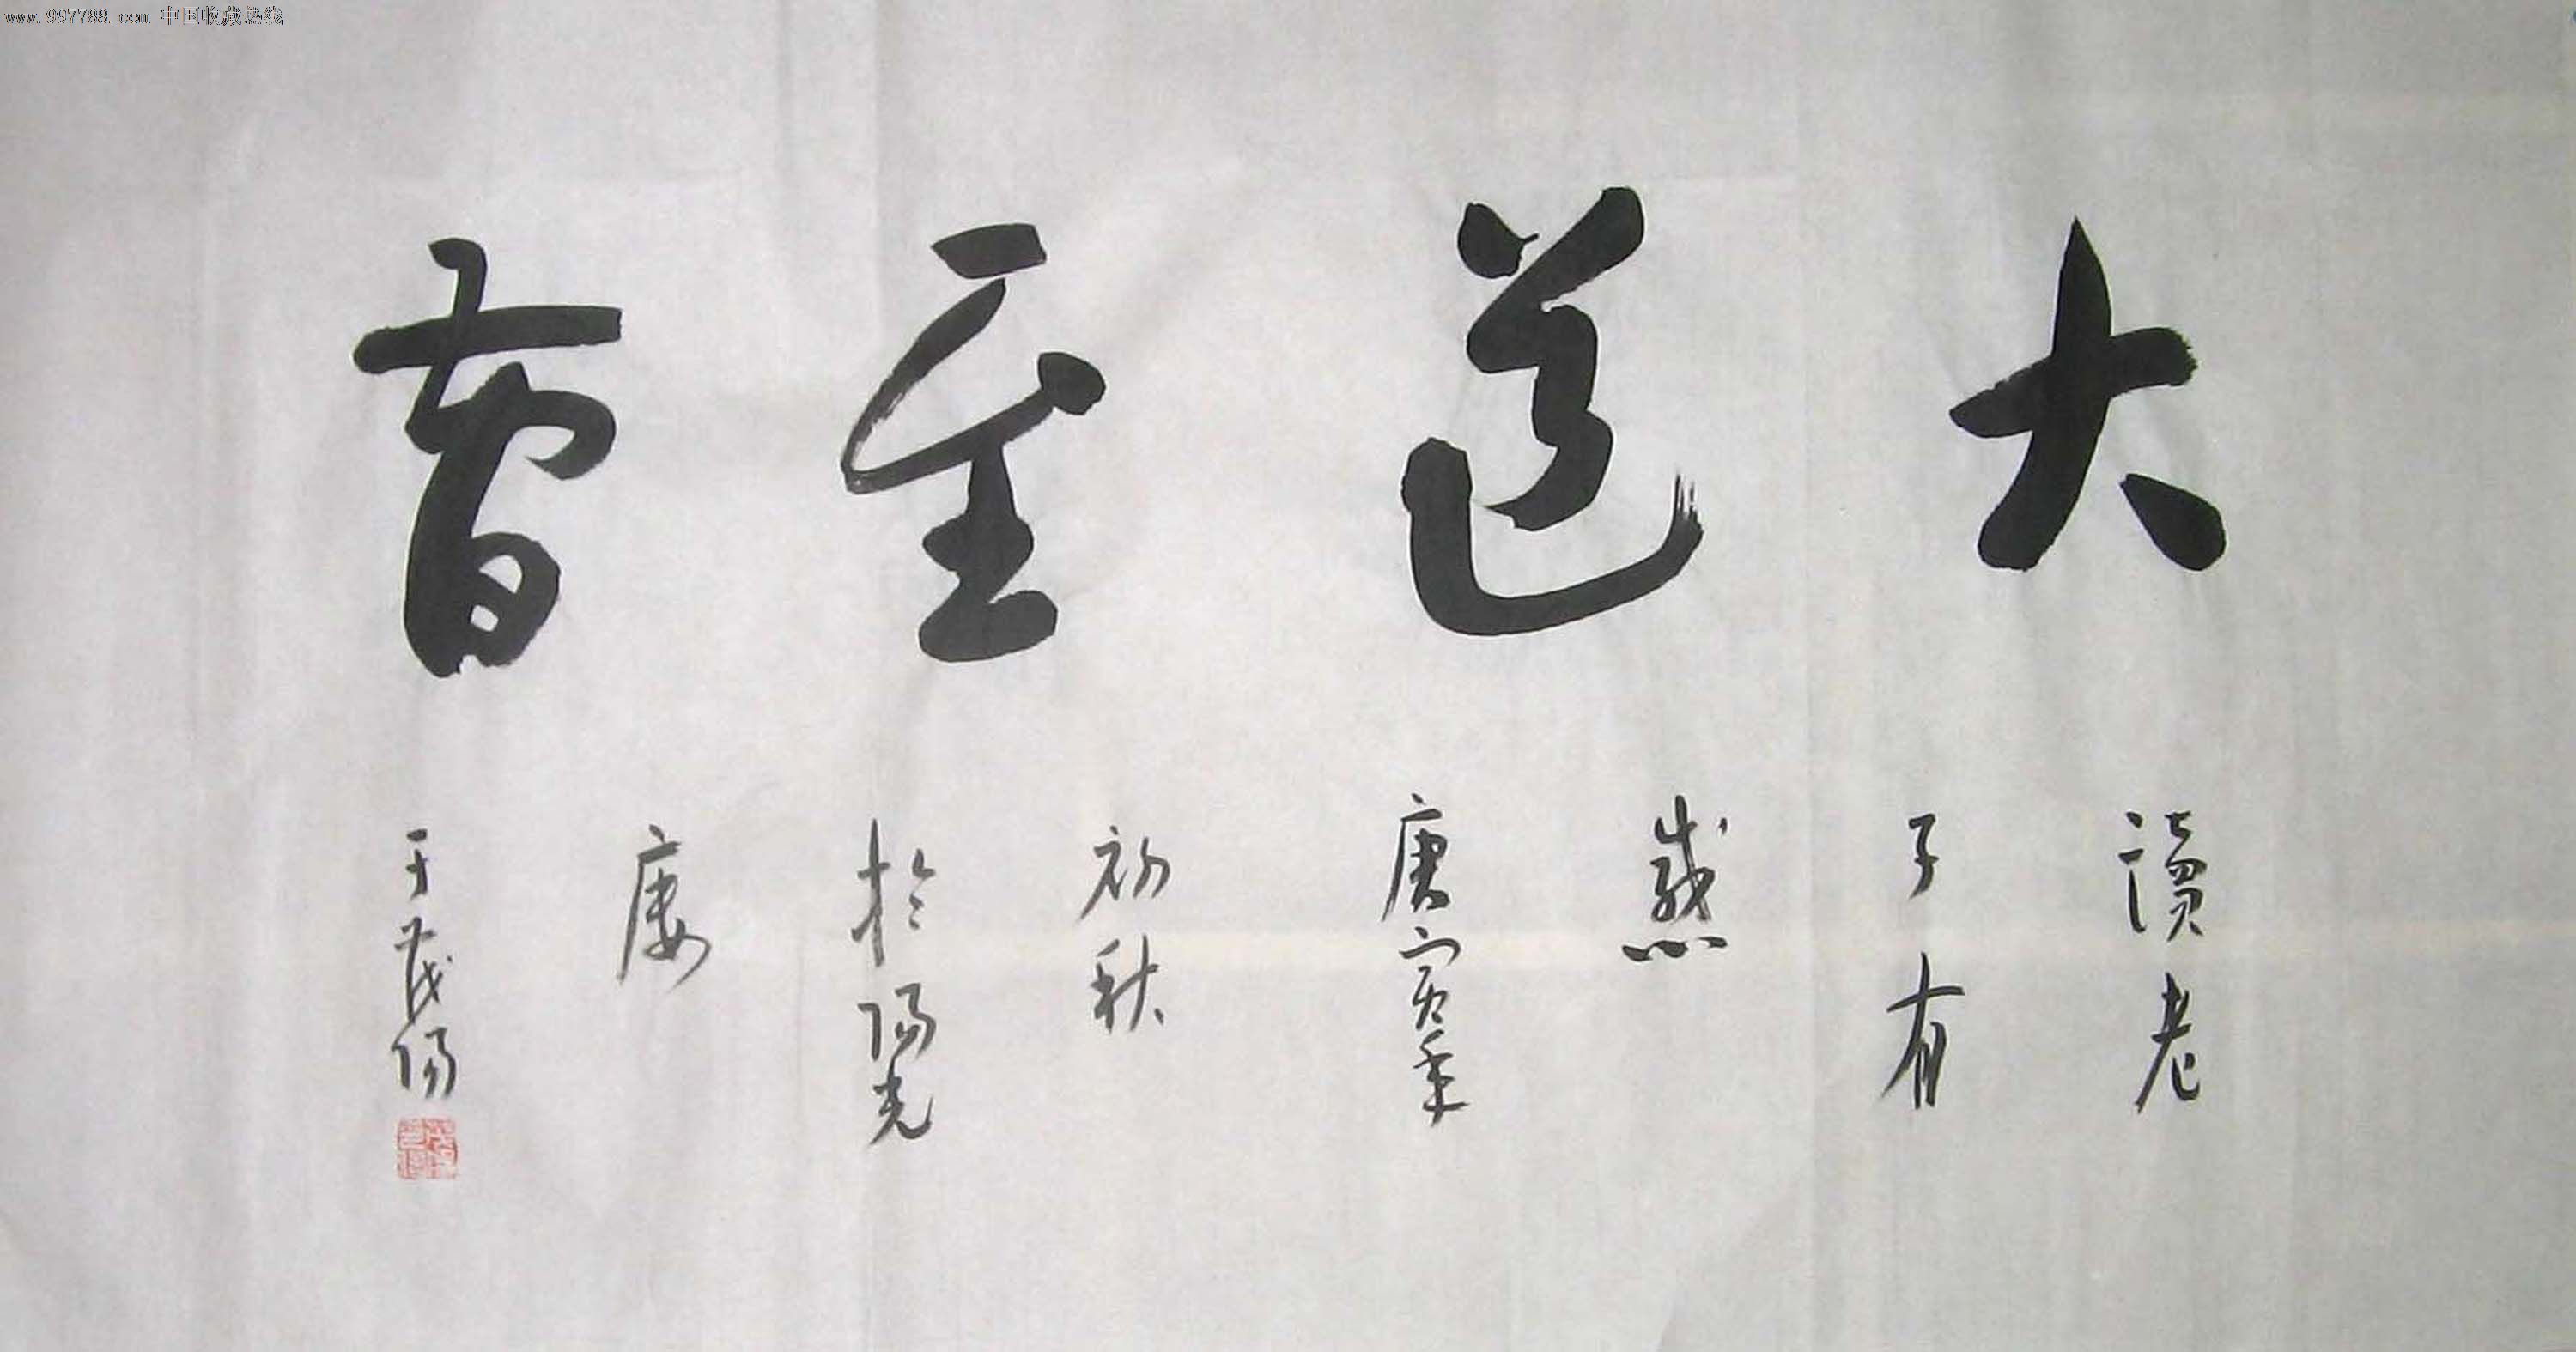 www.997788.com 中国收藏热线
大道至簡
讀老
子有
感
庚寅年
初秋
於陽光
于茂陽